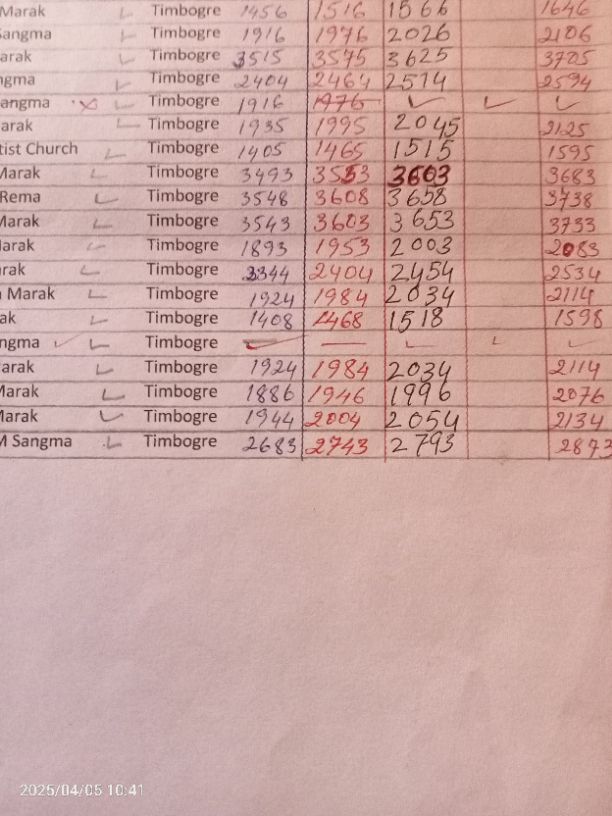 Marak Timbogre 1456 1516 1566 1646
Sangma Timbogre 1916 1976 2026 2106
arak Timbogre 3515 3575 3625 3705
ngma Timbogre 2404 2464 2514 2594
angma Timbogre 1916 1976
arak Timbogre 1935 1995 2045 2125
tist Church Timbogre 1405 1465 1515 1595
Marak Timbogre 3493 3553 3603 3683
Rema Timbogre 3548 3608 3658 3738
Marak Timbogre 3543 3603 3653 3733
Marak Timbogre 1893 1953 2003 2083
arak Timbogre 2344 2404 2454 2534
Marak Timbogre 1924 1984 2034 2114
ak Timbogre 1408 1468 1518 1598
ngma Timbogre
arak Timbogre 1924 1984 2034 2114
Marak Timbogre 1886 1946 1996 2076
Marak Timbogre 1944 2004 2054 2134
M Sangma Timbogre 2683 2743 2793 2873
2025/04/05 10:41